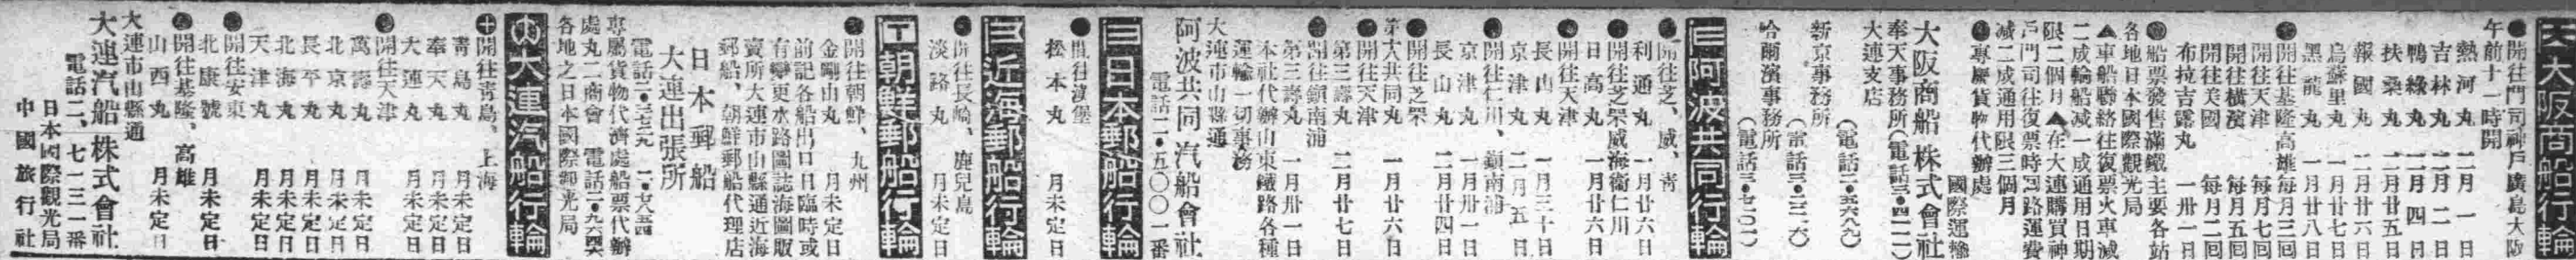 大阪商船行輪
●開往門司神戶廣島大阪
午前十一時開
熱河丸 二月一日
吉林丸 二月二日
鴨綠丸 二月四日
扶桑丸 一月廿五日
報國丸 一月廿六日
烏蘇里丸 一月廿七日
黑龍丸 一月廿八日
●開往基隆高雄每月三回
開往天津 每月七回
開往橫濱 每月五回
開往美國 每月二回
布拉吉露丸 一卅一日
●船票發售滿鐵主要各站
各地日本國際觀光局
▲車船聯絡往復票火車減
二成輪船減一成通用日期
限二個月▲在大連購買神
戶門司往復票時回路運費
減二成通用限三個月
●專屬貨物代辦處
國際運輸
大阪商船株式會社
奉天事務所
大連支店
新京事務所
哈爾濱事務所
阿波共同行輪
●開往芝、威、青
利通丸 一月廿六日
●開往芝罘威海衛仁川
日高丸 一月廿六日
●開往天津
長山丸 一月三十日
京津丸 二月五日
●開往仁川、鎮南浦
京津丸 一月卅一日
長山丸 二月廿四日
●開往芝罘
第六共同丸 一月廿六日
●開往天津
第三壽丸 二月廿七日
●開往鎮南浦
第三壽丸 一月卅一日
本社代辦山東鐵路各種
運輸一切事務
大連市山縣通
阿波共同汽船會社
電話二・五〇〇一番
日本郵船行輪
●開往漢堡
松本丸 月未定日
近海郵船行輪
●開往長崎、鹿兒島
淡路丸 月未定日
朝鮮郵船行輪
●開往朝鮮、九州
金剛山丸 月未定日
前記各船出口日臨時或
有變更水路圖誌海圖販
賣所大連市山縣通近海
郵船、朝鮮郵船代理店
日本郵船
大連出張所
專屬貨物代濟處船票代辦
處丸二商會
各地之日本國際觀光局
大連汽船行輪
●開往青島、上海
青島丸 月未定日
奉天丸 月未定日
大連丸 月未定日
●開往天津
萬壽丸 月未定日
北京丸 月未定日
長平丸 月未定日
北海丸 月未定日
天津丸 月未定日
●開往安東
北康號 月未定日
●開往基隆、高雄
山西丸 月未定日
大連市山縣通
大連汽船株式會社
電話二、七一三一番
日本國際觀光局
中國旅行社